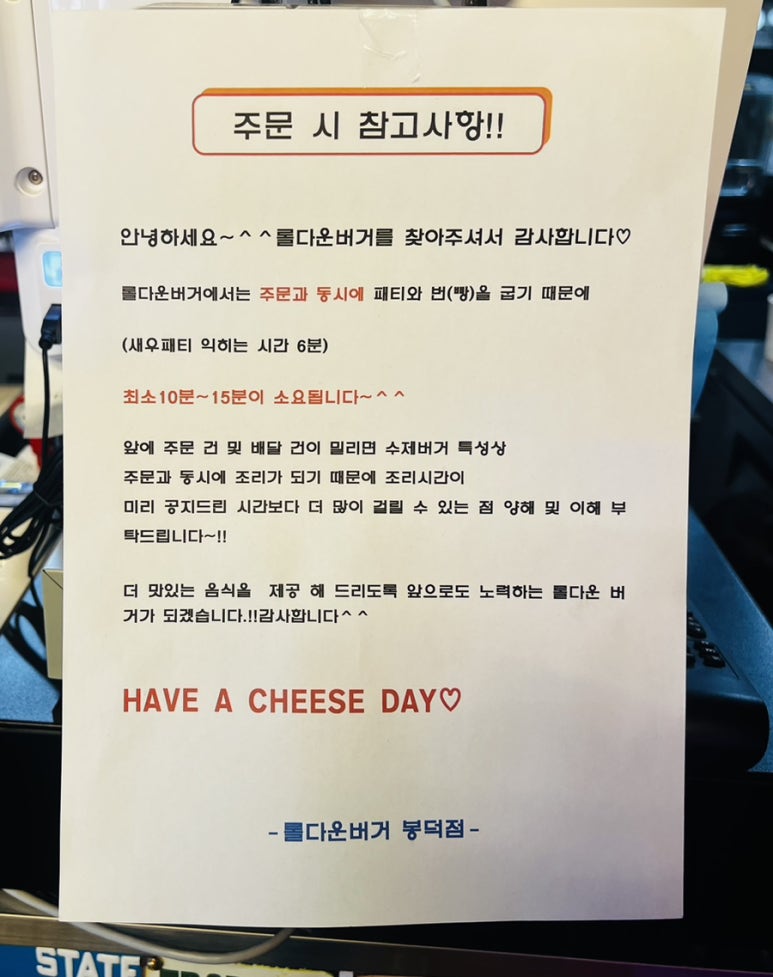 주문 시 참고사항!!
안녕하세요~^^롤다운버거를 찾아주셔서 감사합니다♡
롤다운버거에서는 주문과 동시에 패티와 번(빵)을 굽기 때문에
(새우패티 익히는 시간 6분)
최소10분~15분이 소요됩니다~^^
앞에 주문 건 및 배달 건이 밀리면 수제버거 특성상
주문과 동시에 조리가 되기 때문에 조리시간이
미리 공지드린 시간보다 더 많이 걸릴 수 있는 점 양해 및 이해 부
탁드립니다~!!
더 맛있는 음식을 제공 해 드리도록 앞으로도 노력하는 롤다운 버
거가 되겠습니다.!!감사합니다^^
HAVE A CHEESE DAY♡
-롤다운버거 봉덕점-
STATE